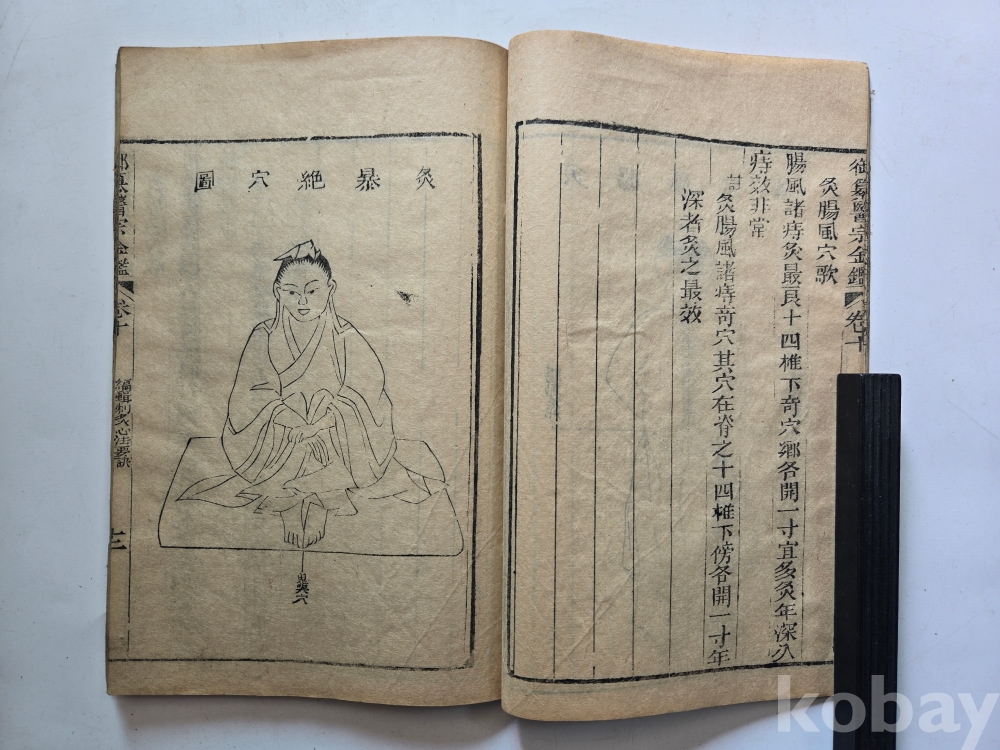 御纂醫宗金鑑 卷十
灸腸風穴歌
腸風諸痔灸最良十四椎下奇穴鄉各開一寸宜多灸年深久
痔效非常
註
灸腸風諸痔奇穴其穴在脊之十四椎下傍各開一寸年
深者灸之最效
灸暴絕穴圖
鬼哭穴
御纂醫宗金鑑 卷十 編輯刺灸心法要訣
kobay